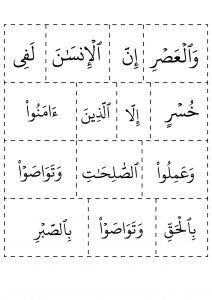 وَٱلْعَصْرِ إِنَّ ٱلْإِنسَـٰنَ لَفِى
خُسْرٍ إِلَّا ٱلَّذِينَ ءَامَنُوا۟
وَعَمِلُوا۟ ٱلصَّـٰلِحَـٰتِ وَتَوَاصَوْا۟
بِٱلْحَقِّ وَتَوَاصَوْا۟ بِٱلصَّبْرِ